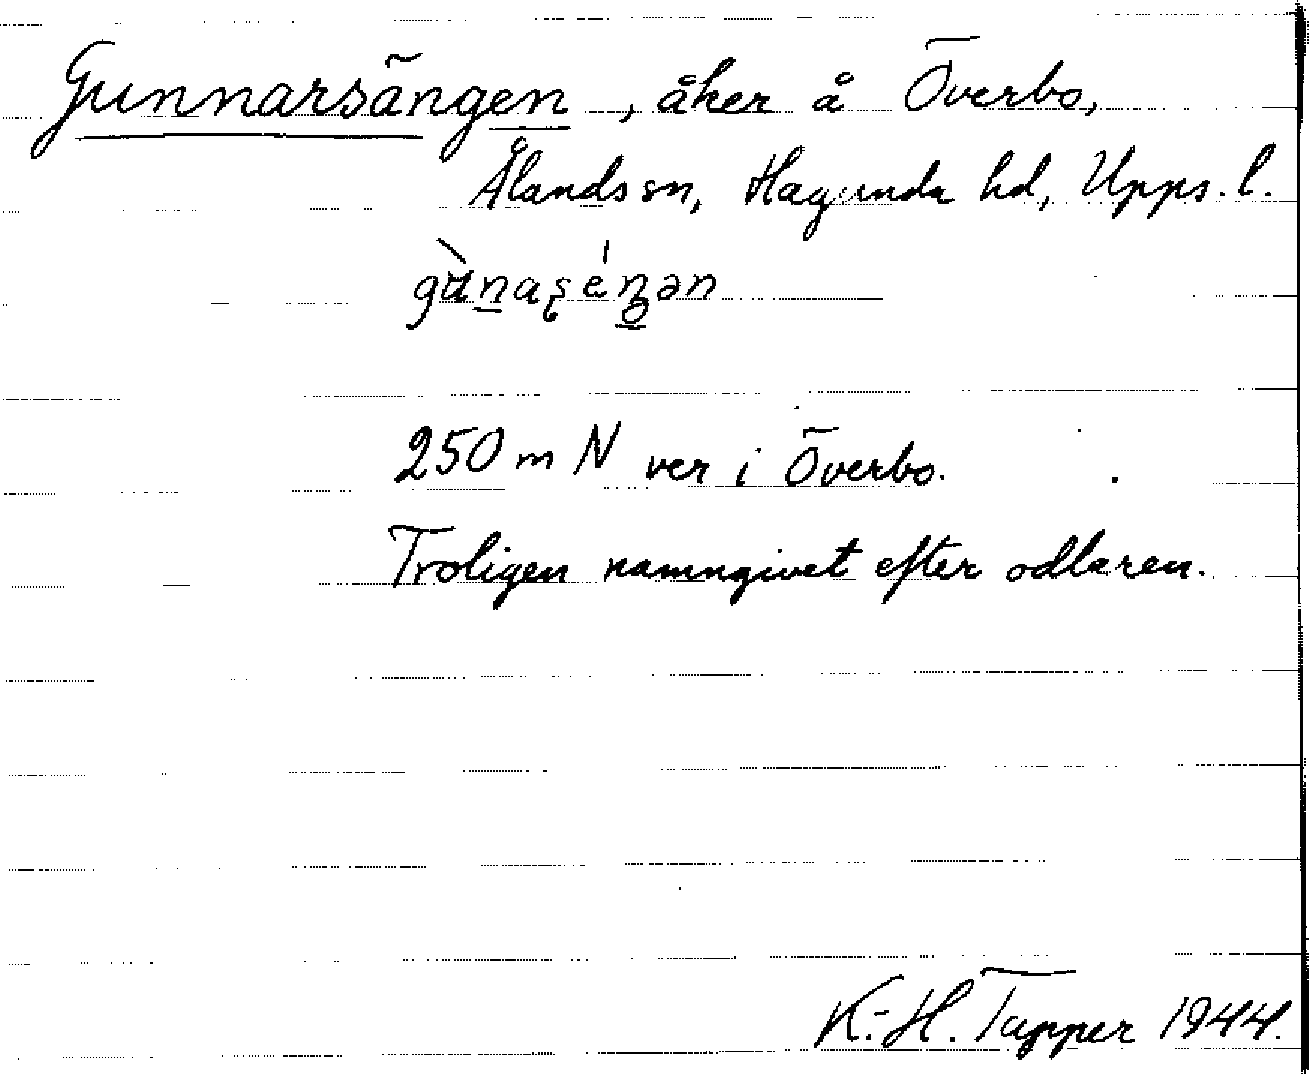 Gunnarsängen, åker å Överbo,
Ålands sn, Hagunda hd, Upps. l.
250 m N ver i Överbo.
Troligen namngivet efter odlaren.
K.-H. Tapper 1944.